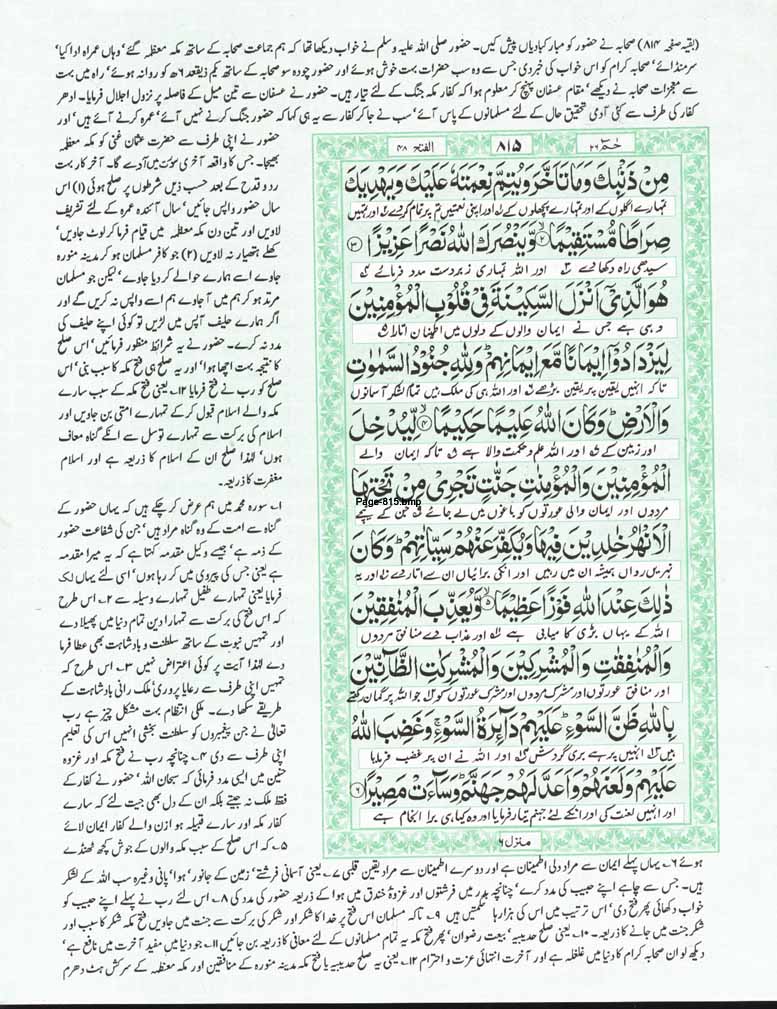 (بقیہ صفحہ ۸۱۴) صحابہ نے حضور کو مبارکبادیاں پیش کیں۔ حضور صلی اللہ علیہ وسلم نے خواب دیکھا تھا کہ ہم جماعت صحابہ کے ساتھ مکہ معظمہ گئے، وہاں عمرہ ادا کیا،
سر منڈائے، صحابہ کرام کو اس خواب کی خبر دی جس سے وہ سب حضرات بہت خوش ہوئے اور حضور چودہ سو صحابہ کے ساتھ یکم ذیقعد ۶ھ کو روانہ ہوئے، راہ میں بہت
سے معجزات صحابہ نے دیکھے، مقام عسفان پہنچ کر معلوم ہوا کہ کفار مکہ جنگ کے لئے تیار ہیں۔ حضور نے عسفان سے تین میل کے فاصلہ پر نزول اجلال فرمایا۔ ادھر
کفار کی طرف سے کئی آدمی تحقیق حال کے لئے مسلمانوں کے پاس آئے، سب نے جا کر کفار سے یہ ہی کہا کہ حضور جنگ کرنے نہیں آئے، عمرہ کرنے آئے ہیں، اور
حٰمٓ ۲۶
۸۱۵
الفتح ۴۸
مِنْ ذَنْۢبِكَ وَمَا تَاَخَّرَ وَيُتِمَّ نِعْمَتَهٗ عَلَيْكَ وَيَهْدِيَكَ
تمہارے اگلوں کے اور تمہارے پچھلوں کے اور اپنی نعمتیں تم پر تمام کردے اور تمہیں
صِرَاطًا مُّسْتَقِيْمًا ۙ۲ وَّيَنْصُرَكَ اللّٰهُ نَصْرًا عَزِيْزًا ۳
سیدھی راہ دکھادے اور اللہ تمہاری زبردست مدد فرمائے
هُوَ الَّذِيْٓ اَنْزَلَ السَّكِيْنَةَ فِيْ قُلُوْبِ الْمُؤْمِنِيْنَ
وہی ہے جس نے ایمان والوں کے دلوں میں اطمینان اتارا
لِيَزْدَادُوْٓا اِيْمَانًا مَّعَ اِيْمَانِهِمْ ؕ وَلِلّٰهِ جُنُوْدُ السَّمٰوٰتِ
تاکہ انہیں یقین پر یقین بڑھے اور اللہ ہی کی ملک ہیں تمام لشکر آسمانوں
وَالْاَرْضِ ؕ وَكَانَ اللّٰهُ عَلِيْمًا حَكِيْمًا ۙ۴ لِّيُدْخِلَ
اور زمین کے اور اللہ علم و حکمت والا ہے تاکہ ایمان والے
الْمُؤْمِنِيْنَ وَالْمُؤْمِنٰتِ جَنّٰتٍ تَجْرِيْ مِنْ تَحْتِهَا
Page-815.bmp
مردوں اور ایمان والی عورتوں کو باغوں میں لے جائے جن کے نیچے
الْاَنْهٰرُ خٰلِدِيْنَ فِيْهَا وَيُكَفِّرَ عَنْهُمْ سَيِّاٰتِهِمْ ؕ وَكَانَ
نہریں رواں ہمیشہ ان میں رہیں اور انکی برائیاں ان سے اتار دے اور یہ
ذٰلِكَ عِنْدَ اللّٰهِ فَوْزًا عَظِيْمًا ۙ۵ وَّيُعَذِّبَ الْمُنٰفِقِيْنَ
اللہ کے یہاں بڑی کامیابی ہے اور عذاب دے منافق مردوں
وَالْمُنٰفِقٰتِ وَالْمُشْرِكِيْنَ وَالْمُشْرِكٰتِ الظَّآنِّيْنَ
اور منافق عورتوں اور مشرک مردوں اور مشرک عورتوں کو جو اللہ پر گمان رکھتے
بِاللّٰهِ ظَنَّ السَّوْءِ ؕ عَلَيْهِمْ دَآئِرَةُ السَّوْءِ ۚ وَغَضِبَ اللّٰهُ
ہیں انہیں پر ہے بری گردش اور اللہ نے ان پر غضب فرمایا
عَلَيْهِمْ وَلَعَنَهُمْ وَاَعَدَّ لَهُمْ جَهَنَّمَ ؕ وَسَآءَتْ مَصِيْرًا ۶
اور انہیں لعنت کی اور انکے لئے جہنم تیار فرمایا اور وہ کیا ہی برا انجام ہے
منزل ۶
حضور نے اپنی طرف سے حضرت عثمان غنی کو مکہ معظمہ
بھیجا۔ جس کا واقعہ آخری سورت میں آوے گا۔ آخر کار بہت
رد و قدح کے بعد حسب ذیل شرطوں پر صلح ہوئی (۱) اس
سال حضور واپس جائیں، سال آئندہ عمرہ کے لئے تشریف
لاویں اور تین دن مکہ معظمہ میں قیام فرما کر لوٹ جاویں،
کھلے ہتھیار نہ لاویں (۲) جو کافر مسلمان ہو کر مدینہ منورہ
جاوے اسے ہمارے حوالے کر دیا جاوے، لیکن جو مسلمان
مرتد ہو کر ہم میں آ جاوے ہم اسے واپس نہ کریں گے اور
اگر ہمارے حلیف آپس میں لڑیں تو کوئی اپنے حلیف کی
مدد نہ کرے۔ حضور نے یہ شرائط منظور فرمائیں، اس صلح
کا نتیجہ بہت اچھا ہوا، اور یہ صلح ہی فتح مکہ کا سبب بنی، اس
صلح کو رب نے فتح فرمایا ۱۲۔ یعنی فتح مکہ کے سبب سارے
مکہ والے اسلام قبول کر کے تمہارے امتی بن جاویں اور
اسلام کی برکت سے تمہارے توسل سے انکے گناہ معاف
ہوں، لہٰذا صلح ان کے اسلام کا ذریعہ ہے اور اسلام
مغفرت کا ذریعہ۔
۱۔ سورہ محمد میں ہم عرض کر چکے ہیں کہ یہاں حضور کے
گناہ سے امت کے وہ گناہ مراد ہیں، جن کی شفاعت حضور
کے ذمہ ہے، جیسے وکیل مقدمہ کہتا ہے کہ یہ میرا مقدمہ
ہے یعنی جس کی پیروی میں کر رہا ہوں، اسی لئے یہاں لک
فرمایا یعنی تمہارے طفیل تمہارے وسیلہ سے ۲۔ اس طرح
کہ اس فتح کی برکت سے تمہارا دین تمام دنیا میں پھیلا دے
اور تمہیں نبوت کے ساتھ سلطنت و بادشاہت بھی عطا فرما
دے لہٰذا آیت پر کوئی اعتراض نہیں ۳۔ اس طرح کہ
تمہیں اپنی طرف سے رعایا پروری، ملک رانی بادشاہت کے
طریقے سکھا دے۔ ملکی انتظام بہت مشکل چیز ہے رب
تعالیٰ نے جن پیغمبروں کو سلطنت بخشی انہیں اس کی تعلیم
اپنی طرف سے دی ۴۔ چنانچہ رب نے فتح مکہ اور غزوہ
حنین میں ایسی مدد فرمائی کہ سبحان اللہ، حضور نے کفار کے
فقط ملک نہ جیتے بلکہ ان کے دل بھی جیت لئے کہ سارے
کفار مکہ اور سارے قبیلہ ہوازن والے کفار ایمان لائے
۵۔ کہ اس صلح کے سبب مکہ والوں کے جوش کچھ ٹھنڈے
ہوئے ۶۔ یہاں پہلے ایمان سے مراد دلی اطمینان ہے اور دوسرے اطمینان سے مراد یقین قلبی ۷۔ یعنی آسمانی فرشتے، زمین کے جانور، ہوا، پانی وغیرہ سب اللہ کے لشکر
ہیں۔ جس سے چاہے اپنے حبیب کی مدد کرے، چنانچہ بدر میں فرشتوں اور غزوۂ خندق میں ہوا کے ذریعہ حضور کی مدد کی ۸۔ اس لئے رب نے پہلے اپنے حبیب کو
خواب دکھائی پھر فتح دی، اس ترتیب میں اس کی ہزارہا حکمتیں ہیں ۹۔ تاکہ مسلمان اس فتح پر خدا کا شکر اور شکر کی برکت سے جنت میں جاویں فتح مکہ شکر کا سبب اور
شکر جنت میں جانے کا ذریعہ۔ ۱۰۔ یعنی صلح حدیبیہ، بیعت رضوان، پھر فتح مکہ یہ تمام مسلمانوں کے لئے معافی کا ذریعہ بن جائیں ۱۱۔ جو دنیا میں مفید آخرت میں نافع ہے،
دیکھ لو ان صحابہ کرام کا دنیا میں غلغلہ ہے اور آخرت انتہائی عزت و احترام ۱۲۔ یعنی یہ صلح حدیبیہ یا فتح مکہ مدینہ منورہ کے منافقین اور مکہ معظمہ کے سرکش ہٹ دھرم